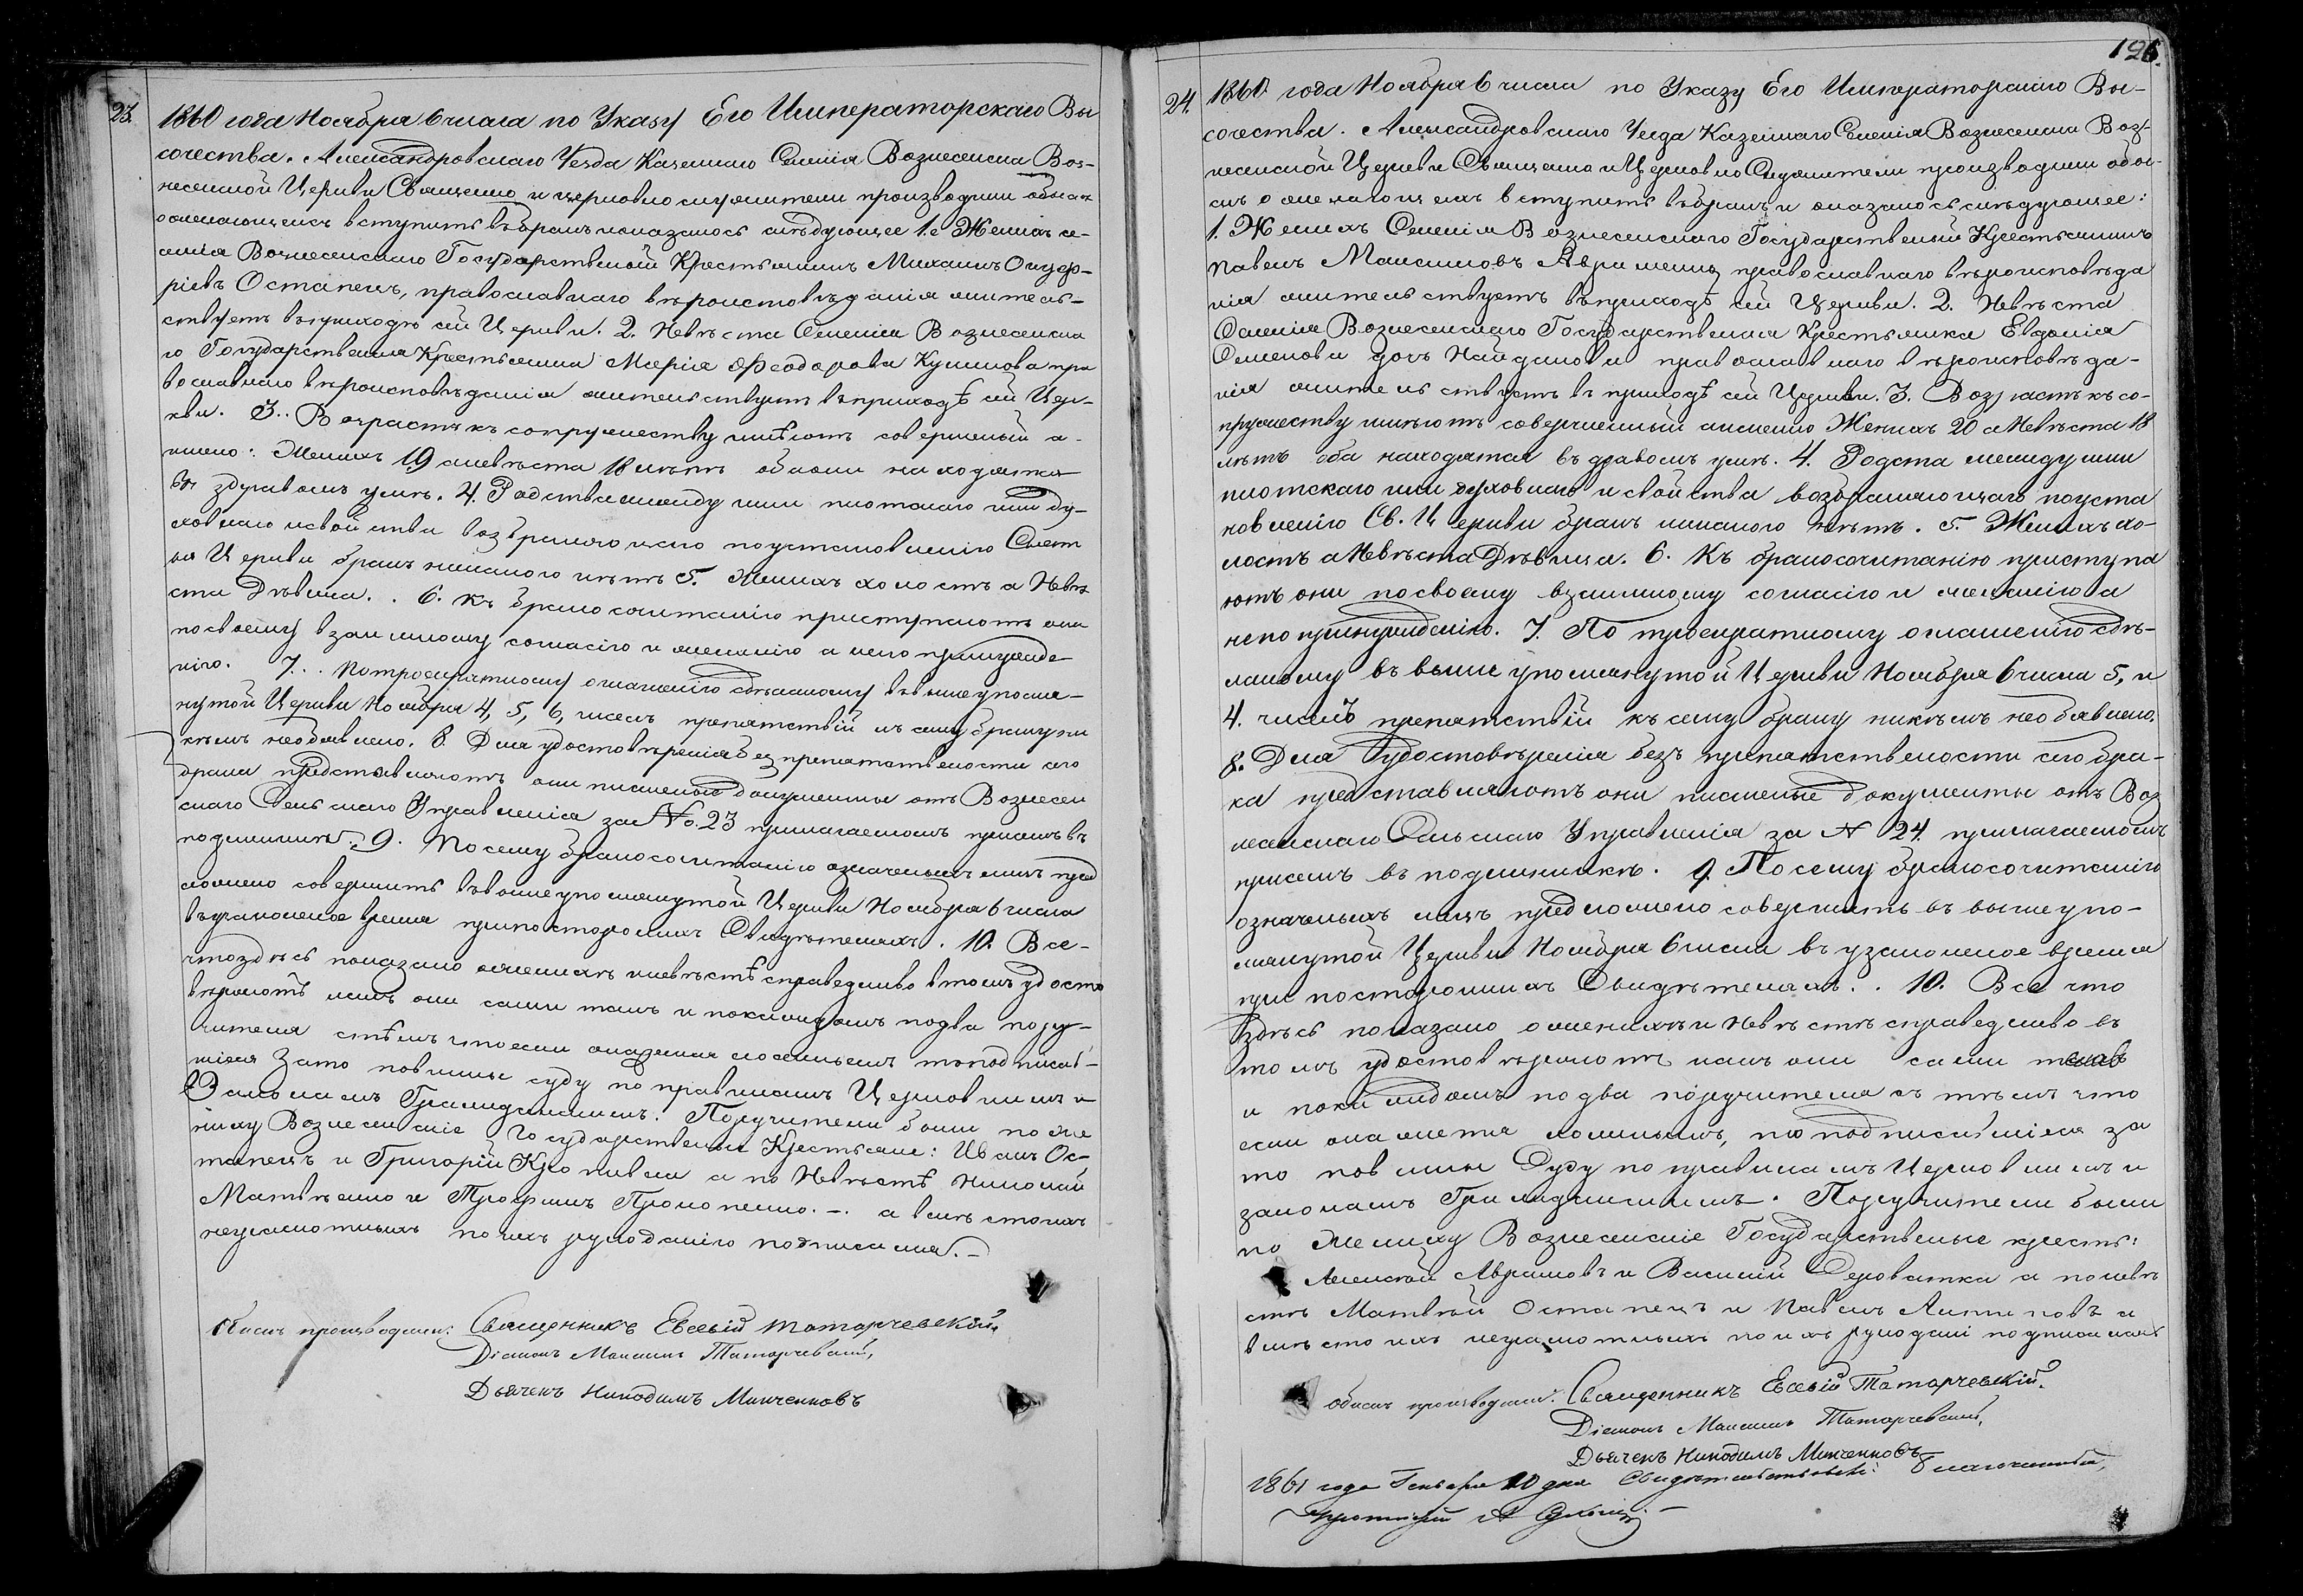 23.
1860 года Ноября 6 числа по Указу Его Императорскаго Вы
сочества. Александровскаго Уезда Казеннаго Селенія Вознесенска Воз-
несенской Церкви Священно и церковно служители производили обыскъ
о желающихъ вступить въ бракъ и оказалось слѣдующее 1. Женихъ се-
ленія Вознесенскаго Государственый Крестьянинъ Михаилъ Онуф-
ріевъ Остапецъ, православнаго вѣроисповѣданія жительс-
ствуетъ въ приходѣ сей Церкви. 2. Невѣста Селенія Вознесенска
го Государственая Крестьянка Марія Феодорова Куликова пра
вославнаго вѣроисповѣданія жительствуетъ въ приходѣ сей Цер-
кви. 3.. Возрастъ къ супружеству имѣютъ совершеный а-
имено: Женихъ 19 а невѣста 18 лѣтъ обаони находятся
въ здравомъ умѣ. 4. Родства между ими плотскаго или ду-
ховнаго и свойства возбраняющаго по установленію Свят
ыя Церкви бракъ никакого нѣтъ 5. Женихъ холостъ а Невѣ
ста Дѣвица.. 6. Къ бракосочитанію приступаютъ они
по своему взаимному согласію и желанію а не по принужде
нію. 7.. По троекратному оглашенію сдѣланному въ вышеупомя-
нутой Церкви Ноября 4, 5, 6, числъ препятствій къ сему браку ни
кѣмъ необявлено. 8. Для удостовѣренія безпрепятствености сего
брака представляютъ они письменые документы отъ Вознесен
скаго Сельскаго Управленія за No. 23 прилагаемомъ присемъ въ
подлиникѣ. 9. Посему бракосочитанію означеныхъ лицъ пред
ложено совершить въ вышеупомянутой Церкви Ноября 6 числа
въ узаконеное время при постороннихъ Свидѣтеляхъ. 10. Все-
что здѣсь показано о женихѣ и невѣстѣ справедливо в томъ удосто
вѣряютъ какъ они сами такъ и по каждомъ по два пору-
чителя стѣмъ что если окажется ложнымъ то подписав-
шіеся за то повины суду по правиламъ Церковнымъ и
Законамъ Гражданскимъ. Поручители были по же
ниху Вознесенскіе Государственые Крестьяне: Иванъ Ос-
тапецъ и Григорій Кропивка а по Невѣстѣ Николай
Матвѣенко и Трофимъ Прокопенко. -. а вмѣсто ихъ
неграмотныхъ по ихъ рукоданію подписался. -
Обыскъ производили: Священникъ Евсевій Татарчевскій,
Діаконъ Максимъ Татарчевскій,
Дьячекъ Никодимъ Минченковъ
126.
24. 1860 года Ноября 6 числа по Указу Его Императорскаго Вы-
сочества. Александровскаго Уезда Казеннаго Селенія Вознесенска Воз-
несенской Церкви Священно и Церковно Служители производили обы-
скъ о желающихъ вступить въ бракъ и оказалось слѣдующее:
1. Женихъ Селенія Вознесенскаго Государственый Крестьянинъ
Павелъ Максимовъ православнаго вѣроисповѣда
нія жительствуетъ въ приходѣ сей Церкви. 2. Невѣста
Селенія Вознесенскаго Государственая Крестьянка Евдокія
Семенова дочь Найданова православнаго вѣроисповѣда-
нія жительствуетъ въ приходѣ сей Церкви. 3. Возрастъ къ со-
пружеству имѣютъ совершенный имено Женихъ 20 а Невѣста 18
лѣтъ оба находятся въ здравомъ умѣ. 4. Родста между ими
плотскаго или духовнаго и свойства возбраняющаго по уста
новленію Св. Церкви бракъ никакого нѣтъ. 5. Женихъ хо-
лостъ а Невѣста Дѣвица. 6. Къ бракосочитанію приступа
ютъ они по своему взаимному согласію и желанію а
не по принужденію. 7. По троекратному оглашенію сдѣ-
ланому въ выше упомянутой Церкви Ноября 6 числа 5, и
4. числъ препятствій къ сему браку никѣмъ необявлено.
8. Для Удостовѣренія безъ препятствености сего бра-
ка представляютъ они писменые документы отъ Воз
несенскаго Сельскаго Управленія за N 24. прилагаемомъ
присемъ въ подлинникѣ. 9. Посему бракосочитанію
означеныхъ лицъ предложено совершить въ вышеупо-
мянутой Церкви Ноября 6 числа въ узаконеное время
при постороннихъ Свидѣтеляхъ.. 10. Все что
здѣсь показано о женихѣ и Невѣстѣ справедливо въ
томъ удостовѣряютъ какъ они сами такъ
и по каждомъ по два поручителя съ тѣмъ что
если окажется ложнымъ, то подписавшіеся за
то повины Суду по правиламъ Церковнымъ и
законамъ Гражданскимъ. Поручители были
по жениху Вознесенскіе Государственые кресть:
Алексѣй Аврамовъ и Василій а по невѣ
стѣ Матвѣй Остапецъ и Павелъ Антиповъ а
вмѣсто ихъ неграмотныхъ по ихъ рукодані подписался
Обыскъ производили: Священникъ Евсевій Татарчевскій.
Діаконъ Максимъ Татарчевскій,
Дьячекъ Никодимъ Минченковъ
1861 года Генваря 10 дня Свидѣтельствовалъ: Благочинный,
Протоіерей А